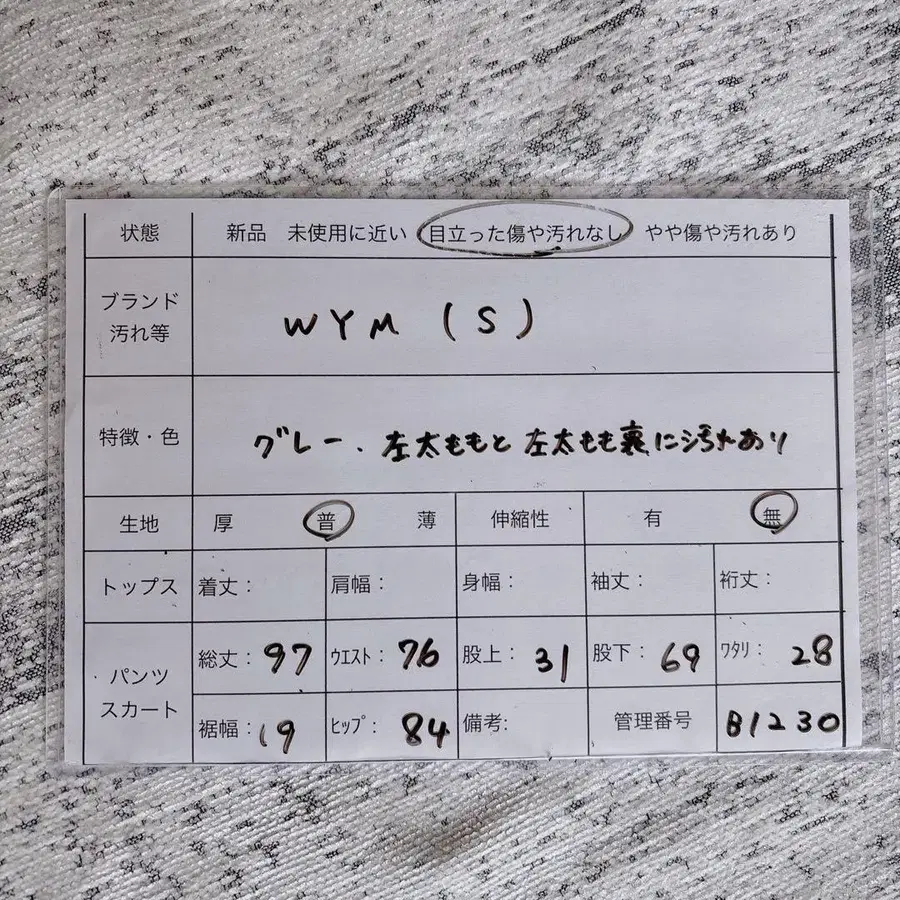 状態 新品 未使用に近い 目立った傷や汚れなし やや傷や汚れあり
ブランド
汚れ等
WYM (S)
特徴・色 グレー、左太ももと左太もも裏に汚れあり
生地 厚 普 薄 伸縮性 有 無
トップス 着丈: 肩幅: 身幅: 袖丈: 裄丈:
パンツ
スカート
総丈: 97 ウエスト: 76 股上: 31 股下: 69 ワタリ: 28
裾幅: 19 ヒップ: 84 備考: 管理番号 B1230